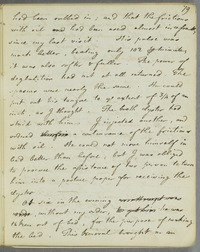 79
had been called in; and that the frictions
with oil had been used almost incessantly
since my last visit. His pulse was
much better, beating only 102 strokes in a minute,
it was also softer & fuller. The power of
deglutition had not at all returned. The
spasms were nearly the same. He could
put out his tongue to ye extent of 3/4 of an
inch, as I thought. The bath
with him. I injected another, and
ordered a continuance of the frictions
with oil. He could not move himself in
bed better than before, but I was obliged
to procure the assistance of two persons to turn
him into a posture proper for receiving the
clyster.
At six in the evening
without my order,
taken out of bed, for the purpose of making
the bed. This removal brought on an